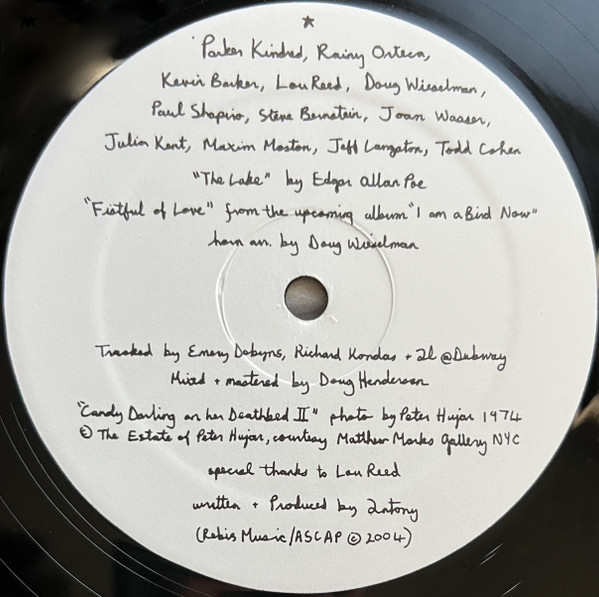 Parker Kindred, Rainy Orteca,
Kevin Barker, Lou Reed, Doug Wieselman,
Paul Shapiro, Steve Bernstein, Joan Wasser,
Julia Kent, Maxim Moston, Jeff Langston, Todd Cohen
"The Lake" by Edgar Allan Poe
"Fistful of Love" from the upcoming album "I am a Bird Now"
horn arr. by Doug Wieselman
Tracked by Emery Dobyns, Richard Kondas + al @Dubway
Mixed + mastered by Doug Henderson
"Candy Darling on her Deathbed II" photo by Peter Hujar 1974
© The Estate of Peter Hujar, courtesy Matthew Marks Gallery NYC
special thanks to Lou Reed
written + Produced by Antony
(Rebis Music/ASCAP © 2004)